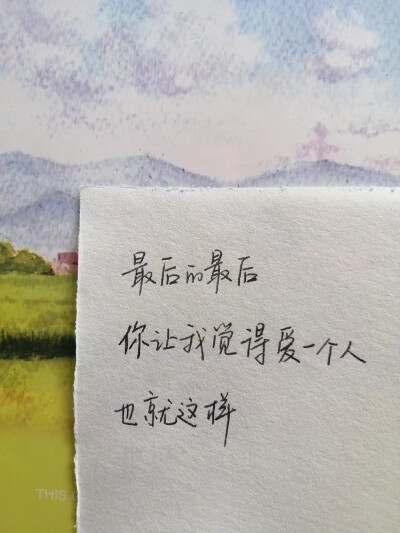 最后的最后
你让我觉得爱一个人
也就这样
THIS